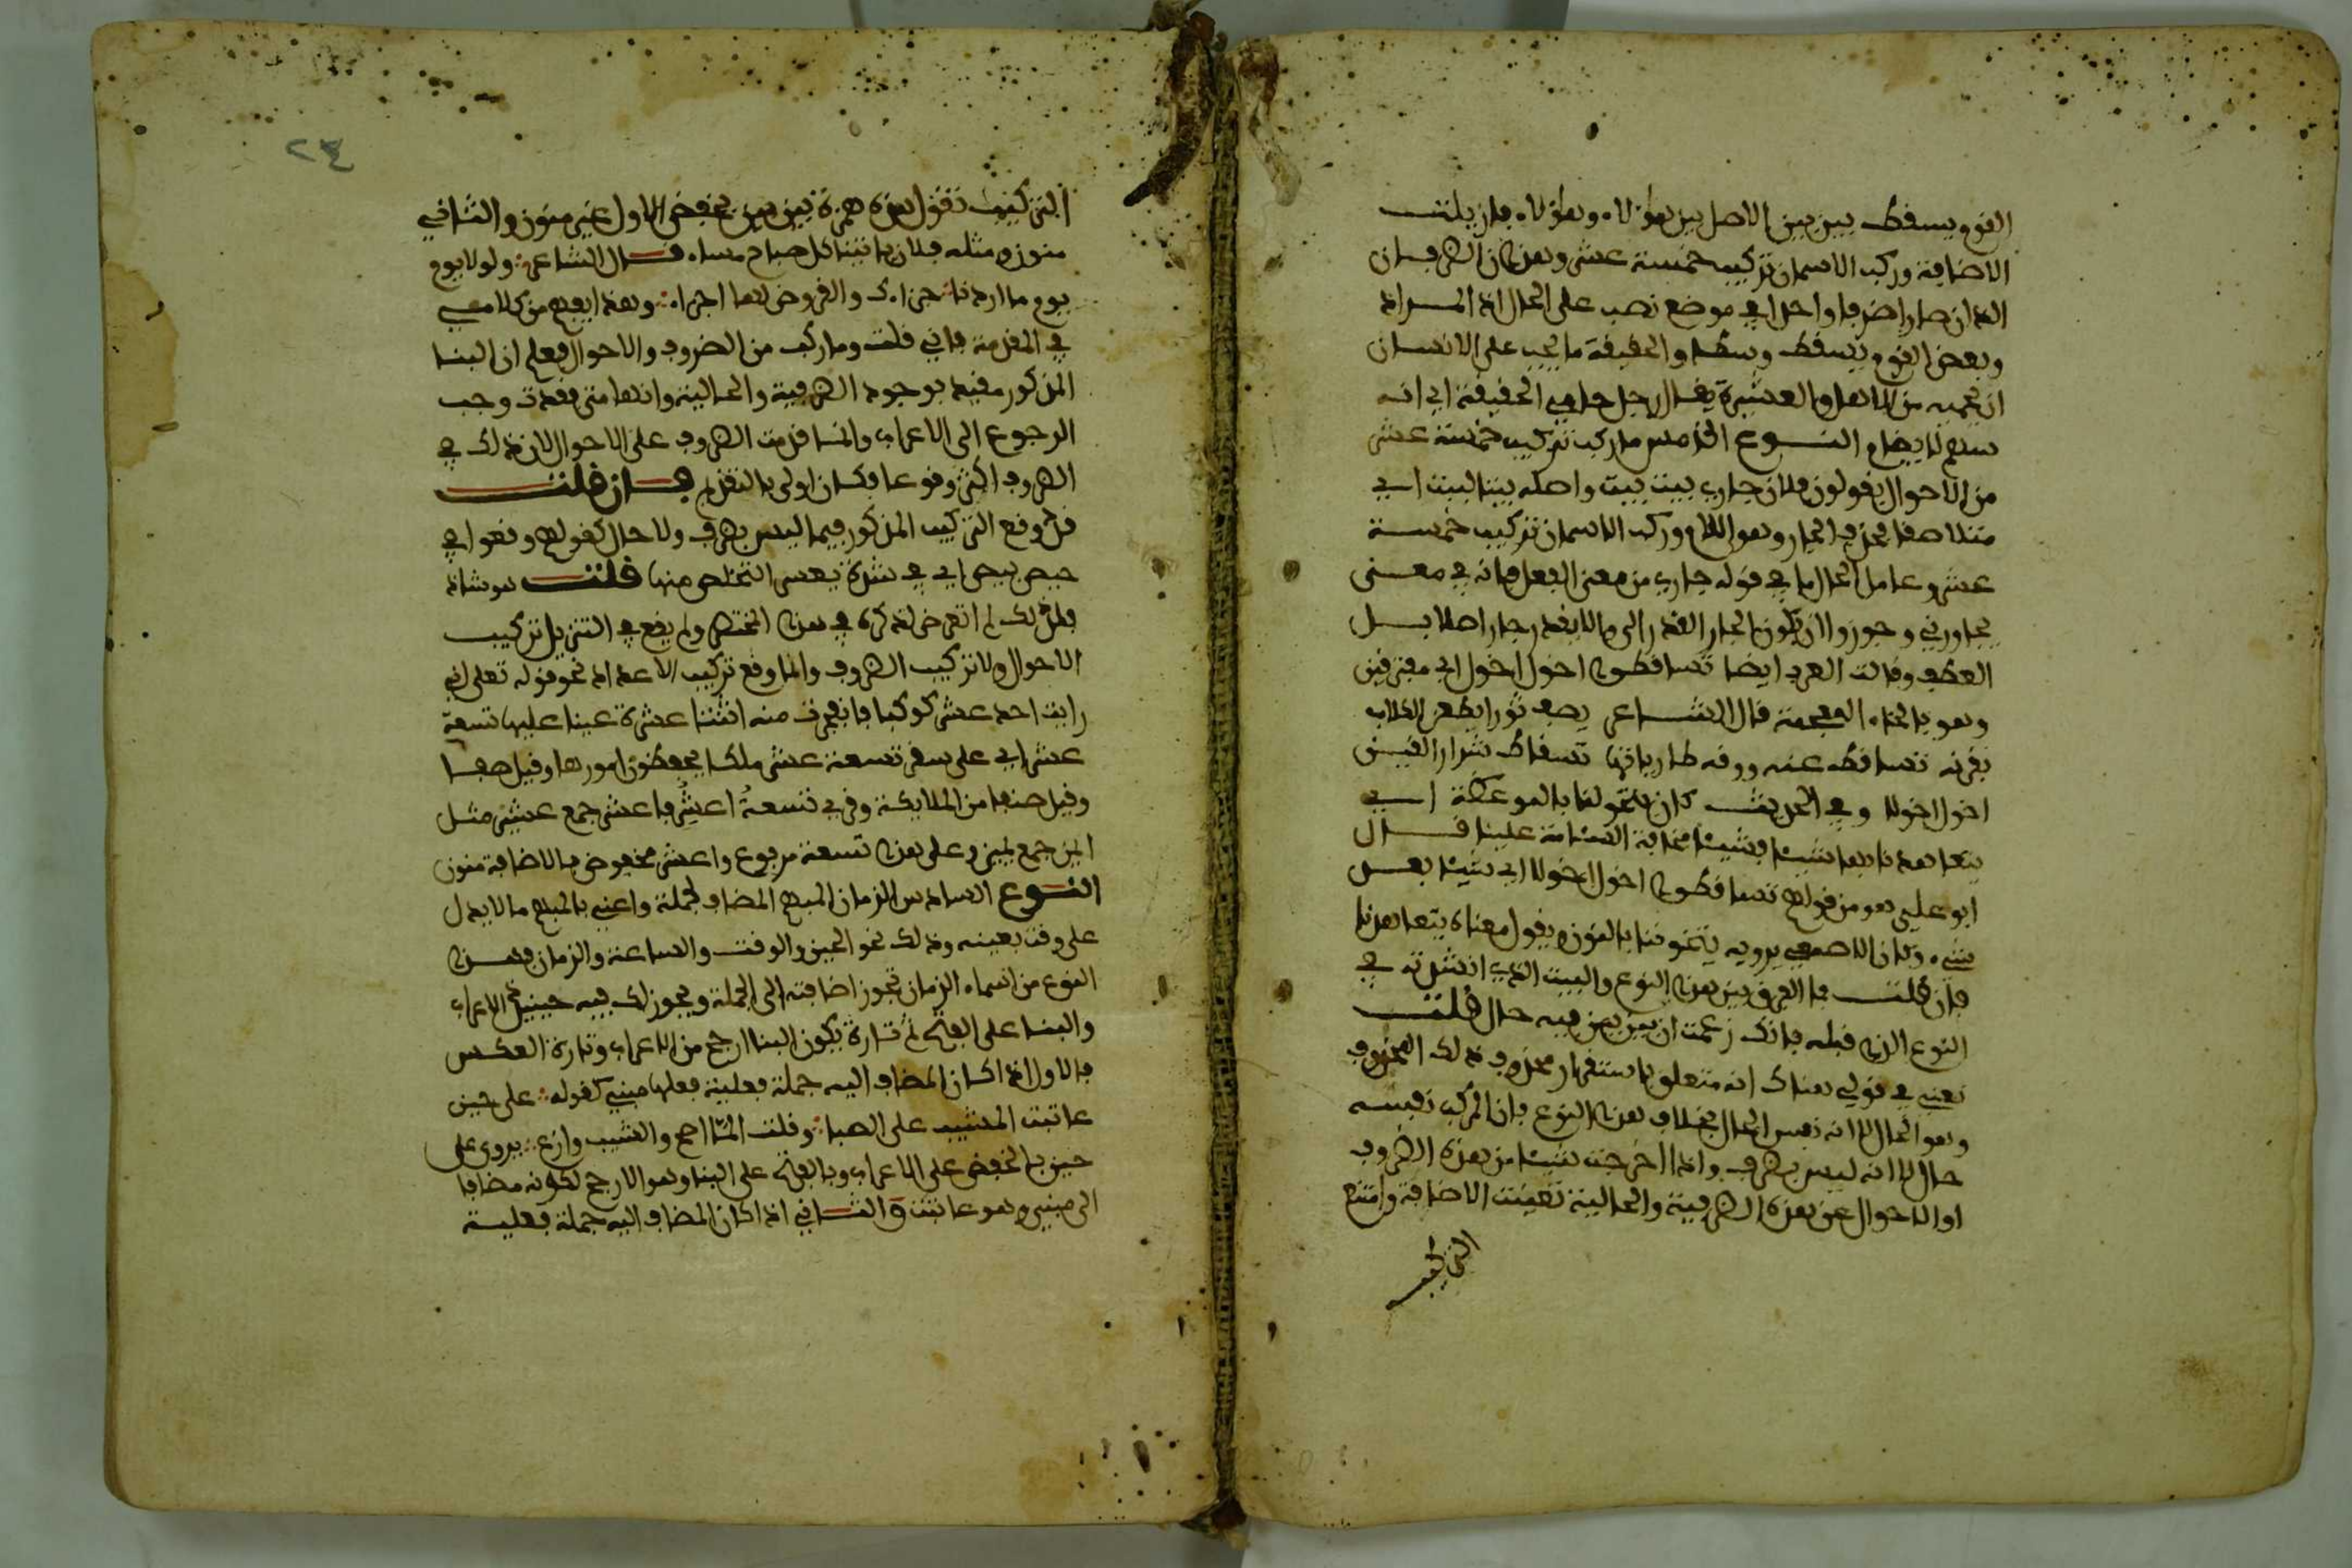 القوم يسقط بين بين الاصل بين هؤلاء وبين هؤلاء فازيلت
الاضافة وركب الاسمان تركيب خمسة عشر وهذان الظرفان
اللذان صارا ظرفا واحدا في موضع نصب على الحال اذ المراد
وبعض القوم يسقط وسطا والحقيقة ما يجب على الانسان
ان يحميه من الاهل والعشيرة يقال رجل حامي الحقيقة اي انه
شهم لا يضام النوع الخامس ما ركب تركيب خمسة عشر
من الاحوال يقولون فلان جاري بيت بيت واصله بيتا لبيت اي
متلاصقا فحذف الجار وهو اللام وركب الاسمان تركيب خمسة
عشر وعامل الحال ما في قوله جاري من معنى الفعل فانه في معنى
يجاورني وجوزوا ان يكون الجار المقدر الى وان لا يقدر جار اصلا بل
العطف وقالت العرب ايضا تساقطوا اخول اخول اي متفرقين
وهو بالخاء المعجمة قال الشاعر يصف ثورا يطعن الكلاب
بقرنه تساقط عنه روقه ضارياتها تساقط شرار القين
اخول اخولا وفي الحديث كان يتخولنا بالموعظة اي
يتعاهدنا بها شيئا فشيئا مخافة السئامة علينا قال
ابو علي هو من قولهم تساقطوا اخول اخولا اي شيئا بعد
شيء وكان الاصمعي يرويه يتخوننا بالنون ويقول معناه يتعاهدنا
فان قلت ما الفرق بين هذا النوع والبيت الذي انشدته في
النوع الذي قبله فانك زعمت ان بين بين فيه حال قلت
نعني في قولي هناك انه متعلق باستقرار محذوف وذلك المحذوف
وهو الحال لا انه نفس الحال بخلاف هذا النوع فان المركب نفسه
حال لا انه ليس بظرف واذا اخرجت شيئا من هذه الظروف
او الاحوال عن هذه الظرفية والحالية تعينت الاضافة وامتنع
التركيب
٢٣
التركيب تقول هذه همزة بين بين بخفض الاول غير منون والثاني
منون ومثله فلان ياتينا كل صباح مساء قال الشاعر ولولا يوم
يوم ما اردنا جزاءك والقروض لها جزاء وهذا يفهم من كلامي
في المقدمة فاني قلت وما ركب من الظروف والاحوال فعلم ان البنا
المذكور مقيد بوجود الظرفية والحالية وانها متى فقدت وجب
الرجوع الى الاعراب وانما قدمت الظروف على الاحوال لان ذلك في
الظروف اكثر وقوعا فكان اولى بالتقديم فان قلت
قد وقع التركيب المذكور فيما ليس بظرف ولا حال كقولهم وقعوا في
حيص بيص اي في شدة يعسر التخلص منها قلت هو شاذ
فلذلك لم اتعرض لذكره في هذا المختصر ولم يقع في التنزيل تركيب
الاحوال ولا تركيب الظروف وانما وقع تركيب الاعداد نحو قوله تعلى اني
رايت احد عشر كوكبا فانفجرت منه اثنتا عشرة عينا عليها تسعة
عشر اي على سقر تسعة عشر ملكا يحفظون امورها وقيل صفا
وقيل صنفا من الملايكة وقرئ تسعة اعشر فاعشر جمع عشير مثل
ايمن جمع يمين وعلى هذا تسعة مرفوع واعشر مخفوض بالاضافة منون
النوع السادس الزمان المبهم المضاف لجملة واعني بالمبهم ما لا يدل
على وقت بعينه وذلك نحو الحين والوقت والساعة والزمان فهذا
النوع من اسماء الزمان تجوز اضافته الى الجملة ويجوز لك فيه حينيذ الاعراب
والبنا على الفتح ثم تارة يكون البنا ارجح من الاعراب وتارة العكس
فالاول اذا كان المضاف اليه جملة فعلية فعلها مبني كقوله على حين
عاتبت المشيب على الصبا وقلت المّا اصح والشيب وازع يروى على
حين بالخفض على الاعراب وبالفتح على البنا وهو الارجح لكونه مضافا
الى مبني وهو عاتبت والثاني اذا كان المضاف اليه جملة فعلية